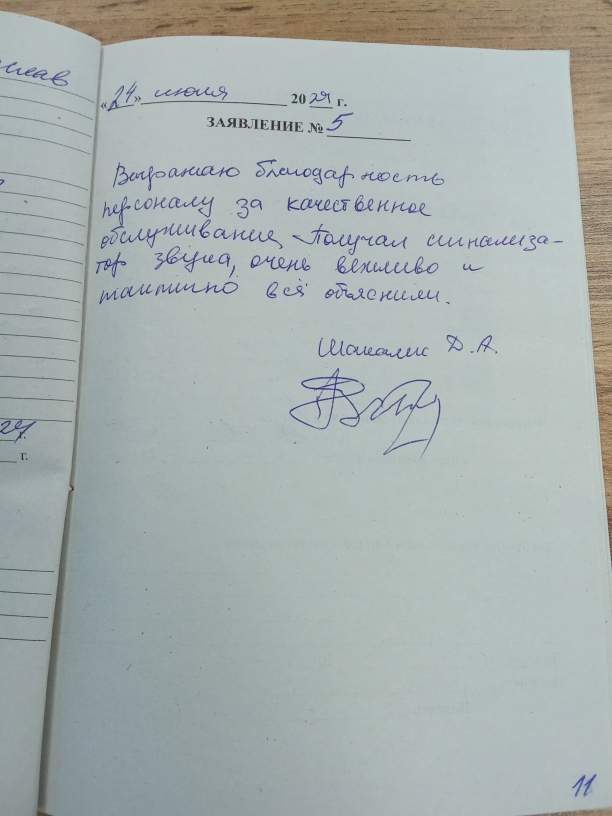 «24» июля 2024 г.
ЗАЯВЛЕНИЕ № 5
Выражаю благодарность
персоналу за качественное
обслуживание. Получал сигнализа-
тор звука, очень вежливо и
тактично всё объяснили.
Д. А.
24 г.
г.
11